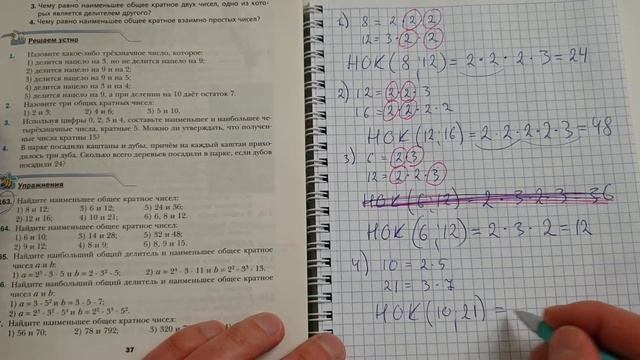 3. Чему равно наименьшее общее кратное двух чисел, одно из которых является делителем другого?
4. Чему равно наименьшее общее кратное взаимно простых чисел?
Решаем устно
1. Назовите какое-либо трёхзначное число, которое:
1) делится нацело на 3, но не делится нацело на 9;
2) делится нацело на 9 и на 2;
3) делится нацело на 9 и на 5;
4) делится нацело на 3 и на 4;
5) делится нацело на 9, а при делении на 10 даёт остаток 7.
2. Назовите три общих кратных чисел:
1) 2 и 3; 2) 4 и 6; 3) 5 и 10.
3. Используя цифры 0, 2, 3 и 4, составьте наименьшее и наибольшее четырёхзначные числа, кратные 5. Можно ли утверждать, что полученные числа кратны 15?
4. В парке посадили каштаны и дубы, причём на каждый каштан приходилось три дуба. Сколько всего деревьев посадили в парке, если дубов посадили 24?
Упражнения
163. Найдите наименьшее общее кратное чисел:
1) 8 и 12; 3) 6 и 12; 5) 24 и 36;
2) 12 и 16; 4) 10 и 21; 6) 6, 8 и 12.
64. Найдите наименьшее общее кратное чисел:
1) 6 и 10; 3) 14 и 28; 5) 32 и 48;
2) 9 и 12; 4) 8 и 9; 6) 8, 9 и 15.
65. Найдите наибольший общий делитель и наименьшее общее кратное
чисел a и b:
6. Найдите наибольший общий делитель и наименьшее общее кратное
чисел a и b:
Найдите наименьшее общее кратное чисел:
1) 56 и 70; 2) 78 и 792; 3) 320
37
1) 8 = 2 · 2 · 2
12 = 3 · 2 · 2
НОК (8, 12) = 2 · 2 · 2 · 3 = 24
2) 12 = 2 · 2 · 3
16 = 2 · 2 · 2 · 2
НОК (12, 16) = 2 · 2 · 2 · 2 · 3 = 48
3) 6 = 2 · 3
12 = 2 · 2 · 3
НОК (6, 12) = 2 · 3 · 2 · 3 = 36
НОК (6, 12) = 2 · 3 · 2 = 12
4) 10 = 2 · 5
21 = 3 · 7
НОК (10, 21) =